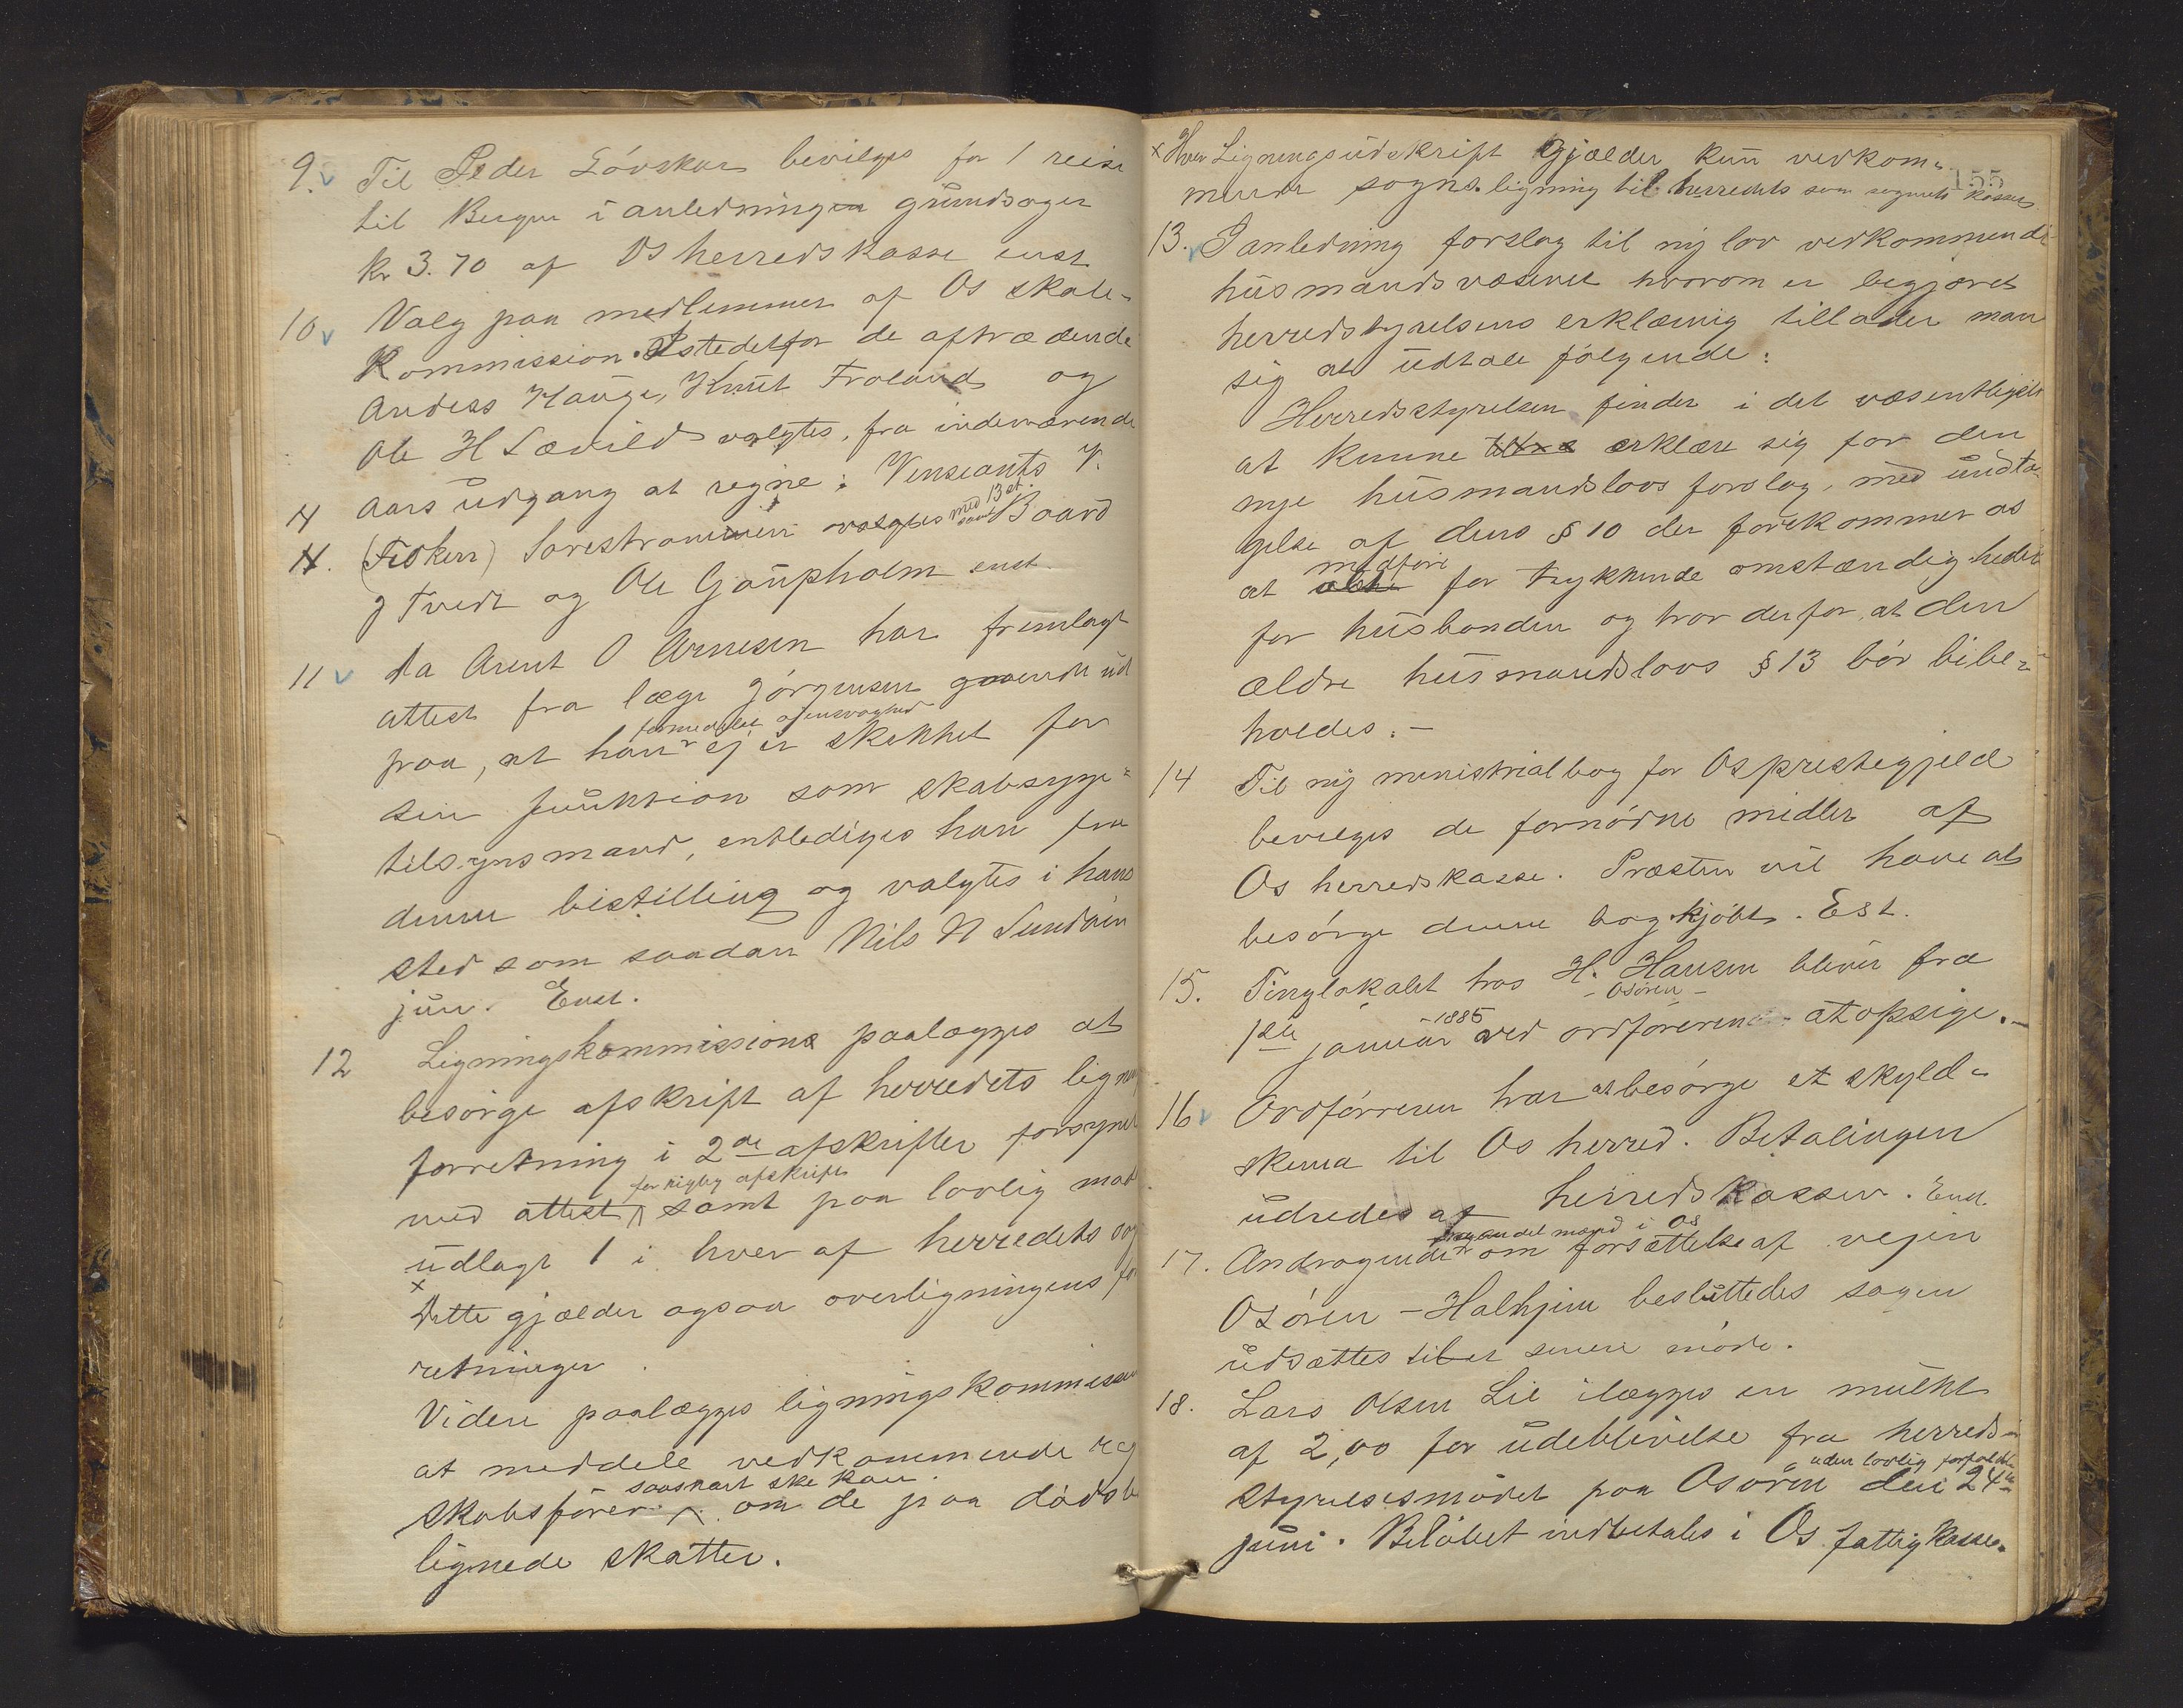 9. Til Peder Lövskar bevilges for 1 reise
til Bergen i anledningen grundsager
kr 3.70 af Os herredskasse enst
10 Valg paa medlemmer af Os skole-
Kommission. Istedetfor de aftrædende
Anders Hauge, Knut Frøland og
Ole H Sævild valgtes, fra indeværende
Aars udgang at regne: Vinseants V.
(Fisker) valgtes med 13 st. samt Baard
J Tvedt og Ole Gaupholm enst.
11 Da Arent O Arnesen har fremlagt
attest fra læge Jörgensen gaaende ud
paa, at han formedelst öiensvaghed ej er skikket for
sin funktion som skabsyge-
tilsynsmand, entlediges han fra
denne bestilling og valgtes i hans
sted som saadan Nils N Sundöen
jun. Enst.
12 Ligningskommissions paalægges at
besörge afskrift af herredets lign
forretning i 2de afskrifter forsynet
med attest for rigtig afskrift samt paa lovlig maade
udlagt 1 i hver af herredets sog
x
Dette gjælder ogsaa overligningens for
retninger.
Videre paalægges ligningskommissen
at meddele vedkommende reg
skabsförer saasnart ske kan. om de paa dödsb
lignede skatter.
155
x Hver Ligningsudskrift Gjælder kun vedkom-
mende sogns ligning til herredets som sognets kasser
13. I anledning forslag til ny lov vedkommende
husmandsvæsenet hvorom er begjæret
herredstyrelsens erklæring tillader man
sig at udtale fölgende:
Herredsstyrelsen finder i det væsentligste
at kunne erklære sig for den
nye husmandslovs forslag, med undta-
gelse af dens § 10 der forekommer os
at medföre for trykkende omstændigheder
for husbonden og tror derfor, at den
ældre husmandslovs § 13 bör bibe-
holdes. -
14 Til ny ministrialbog for Os prestegjeld
bevilges de fornödne midler af
Os herredskasse. Præsten vil have at
besörge denne bog kjöbt. Est.
15. Tinglokalet hos H. Hansen - Osören - bliver fra
1ste januar - 1885 ved ordföreren at opsige. -
16 Ordföreren har at besörge et skyld-
skema til Os herred. Betalingen
udredes af herredskassen. Enst.
17. Andragende fra en del mænd i Os om forsættelse af vejen
Osören - Halhjem besluttedes sagen
udsættes til et senere möde.
18. Lars Olsen Lie ilægges en mulkt
af 2,00 for udeblivelse fra herreds-
styrelsesmödet paa Osören uden lovlig forfald den 24de
juni. Belöbet indbetales i Os fattigkasse.